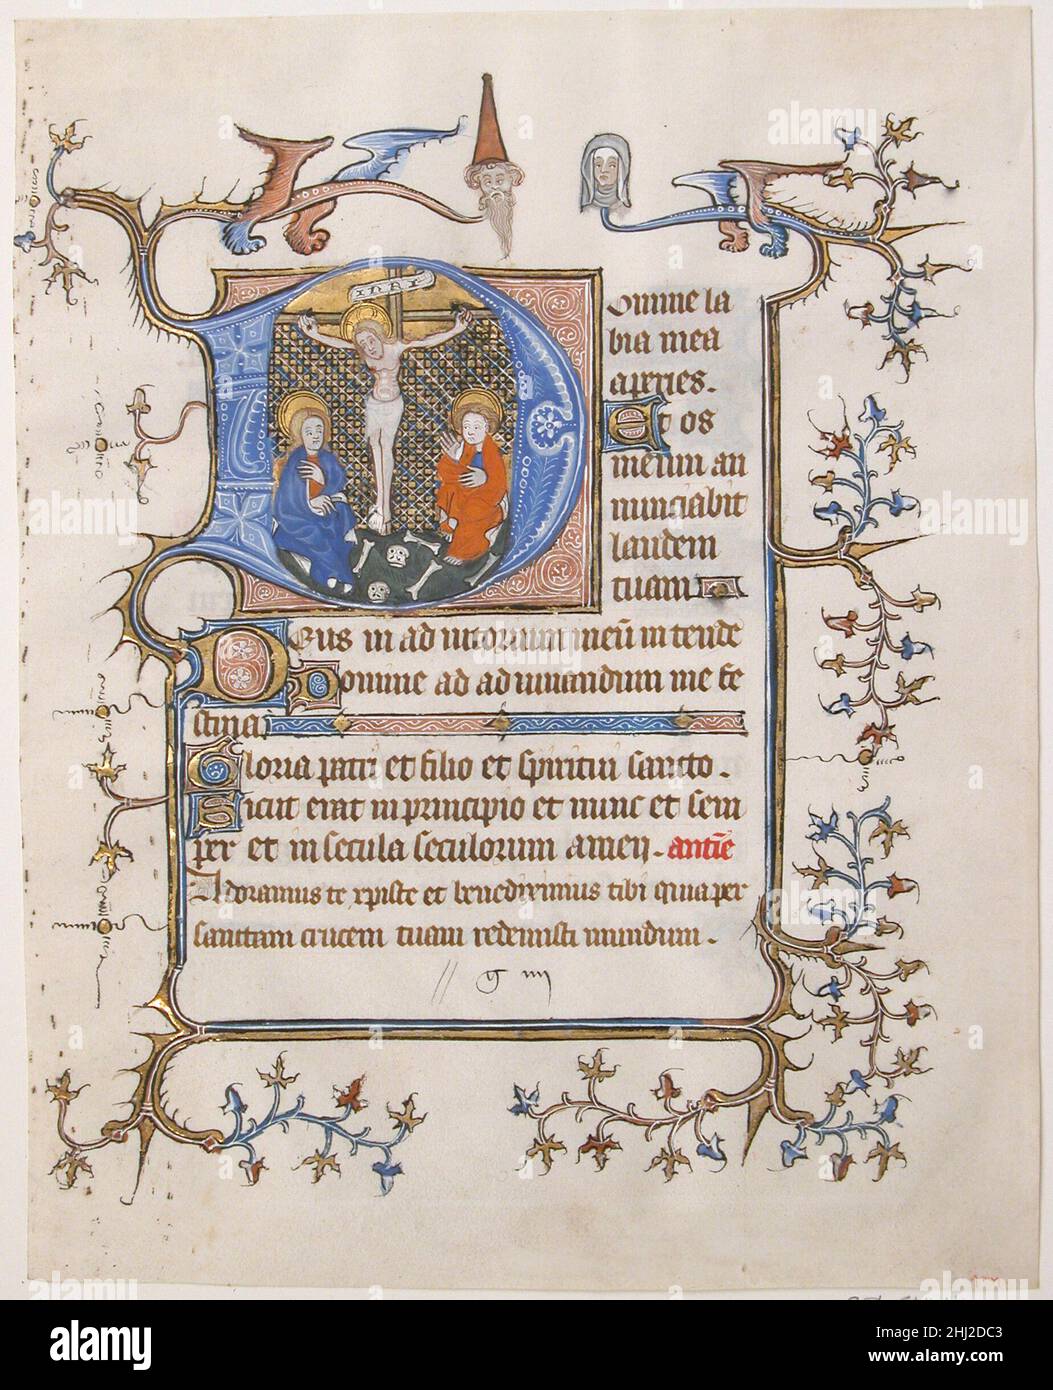 INRI
Domine la
bia mea
aperies.
Et os
meum an
nunciabit
laudem
tuam
Deus in ad iutorium meũ in tende
Domine ad adiuuandum me fe
stina
Gloria patri et filio et spiritui sancto.
Sicut erat in principio et nunc et sem
per et in secula seculorum amen. antiẽ
Adoramus te xpiste et benedicimus tibi quia per
sanctam crucem tuam redemisti mundum.
alamy
Image ID: 2HJ2DC3
www.alamy.com